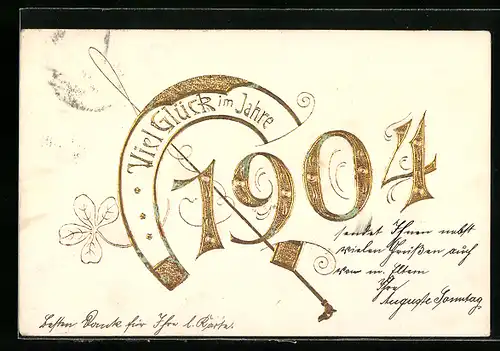 Viel Glück im Jahre
1904
sendet Ihnen nebst
vielen Grüßen auch
von m. Eltern
Ihre
Auguste Sonntag
Besten Dank für Ihre l. Karte.